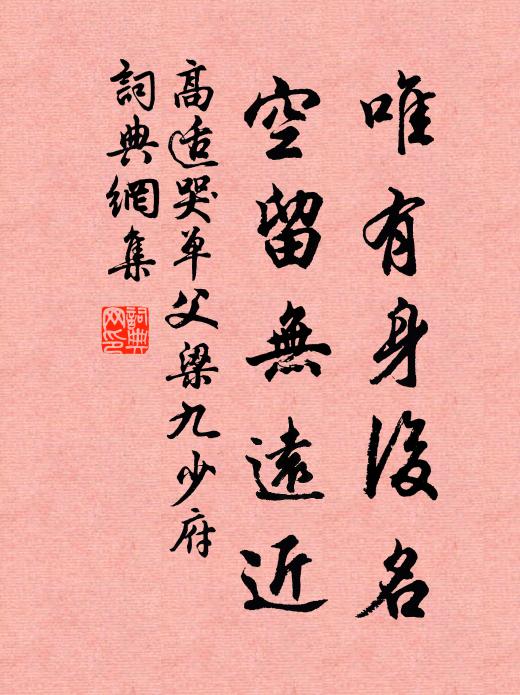 唯有身後名
空留無遠近
高适哭单父梁九少府
詞典網集
詞典
网印